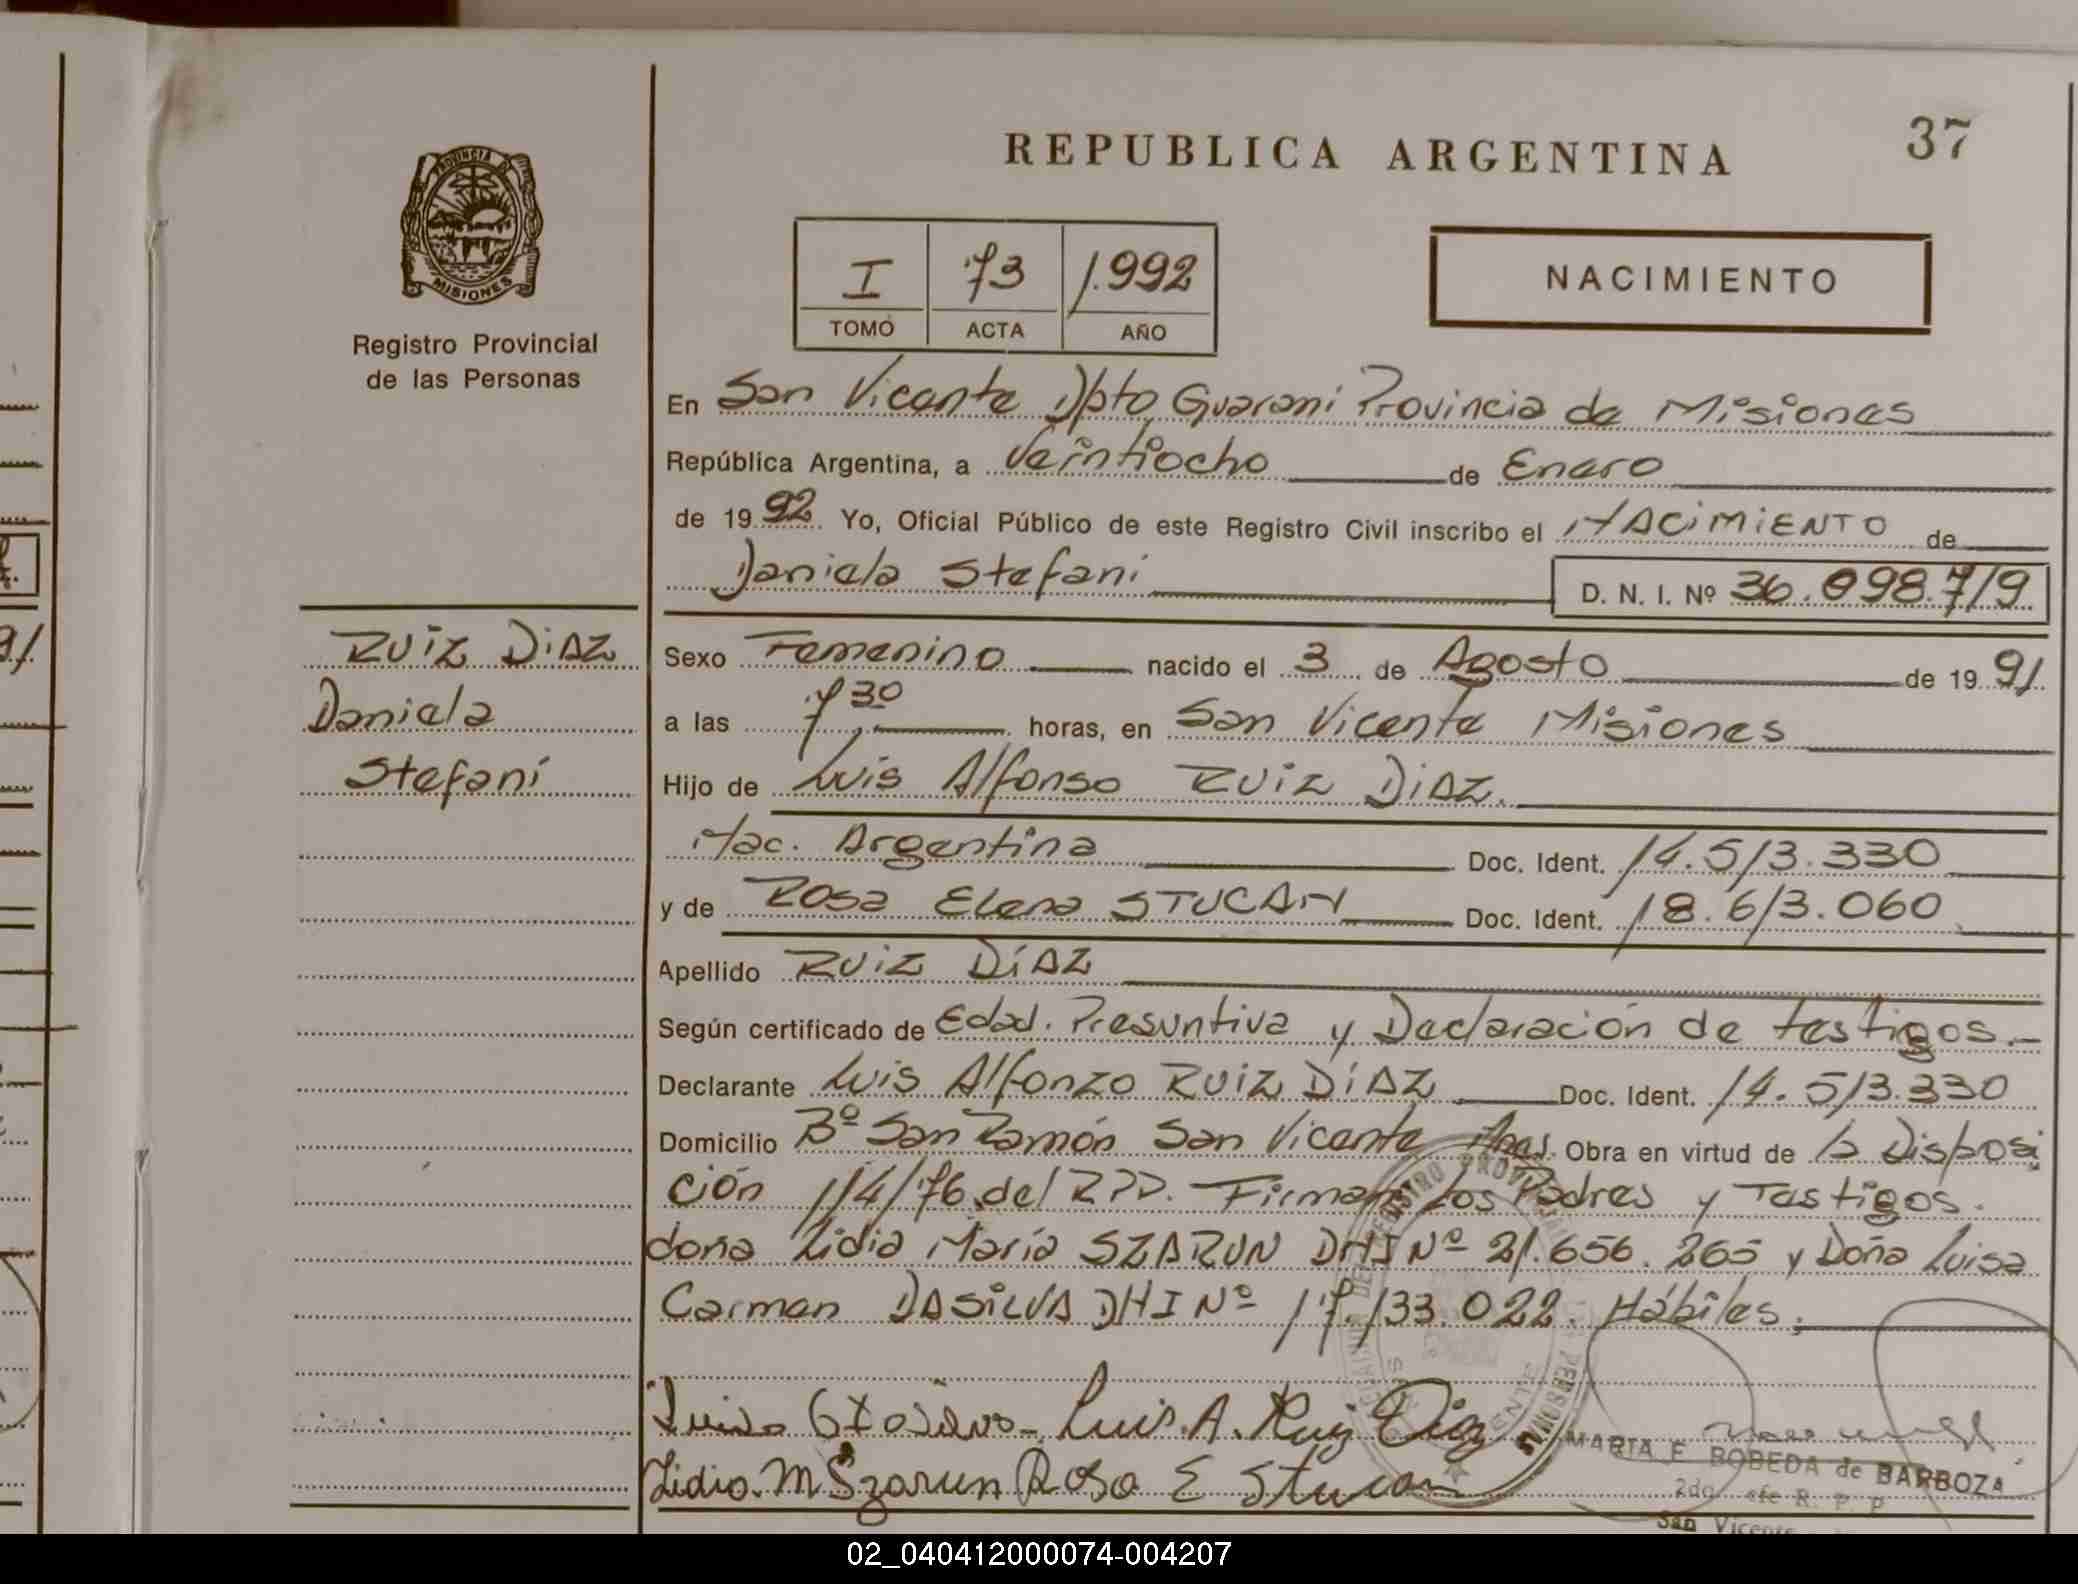 REPUBLICA ARGENTINA
37
PROVINCIA DE
MISIONES
Registro Provincial
de las Personas
I 73 1.992
TOMO ACTA AÑO
NACIMIENTO
En San Vicente Dpto Guarani Provincia de Misiones
República Argentina, a Veintiocho de Enero
de 1992 Yo, Oficial Público de este Registro Civil inscribo el NACIMIENTO de
Daniela Stefani D. N. I. Nº 36.098.719
RUIZ DIAZ
Daniela
Stefani
Sexo Femenino nacido el 3 de Agosto de 1991.
a las 7,30 horas, en San Vicente Misiones
Hijo de Luis Alfonso RUIZ DIAZ.
Nac. Argentina Doc. Ident. 14.513.330
y de Rosa Elena STUCAN Doc. Ident. 18.613.060
Apellido RUIZ DÍAZ
Según certificado de Edad. Presuntiva y Declaración de testigos.-
Declarante Luis Alfonzo RUIZ DÍAZ Doc. Ident. 14.513.330
Domicilio Bº San Ramón San Vicente Mnes. Obra en virtud de la Disposi
ción 114/76 del RPP. Firman Los Padres y Testigos.
doña Lidia María SZARUN DNI Nº 21.656.265 y Doña Luisa
Carmen DASILVA DNI Nº 17.133.022. Hábiles.
Luis A. Ruiz Diaz
Lidia. M Szarun Rosa E Stucan
MARIA E BOBEDA de BARBOZA
2da. Jefe R. P. P.
San Vicente
02_040412000074-004207